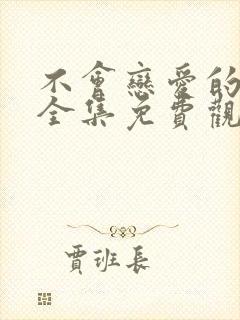 不會戀愛的
全集免費觀
賈班長